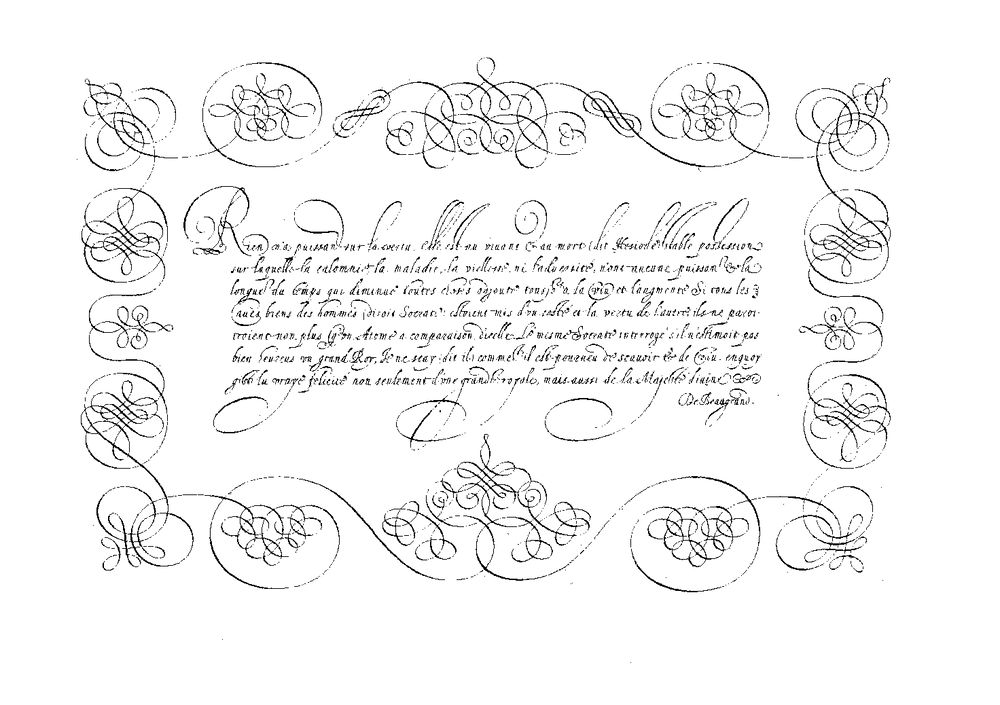 Rien n'a puissan sur la vertu, elle est au vivant & au mort (dit Hesiode stable possession
sur laquelle la calomnie la maladie, la viellesse, ni l'adversité, n'ont aucune puissan & la
longue du temps qui diminue toutes choses adjoute la et l'augmente Si tous les
biens des hommes (disoit Socrate) estoient mis d'un costé et la vertu de l'autre ils ne paroi-
troient non plus qu'on Atome a comparaison dicelle. Le mesme Socrate interrogé s'il n'estimoit pas
bien heureux un grand Roy, Je ne scay, dit il, comme il est pourveu de scavoir & de
la vraye felicité non seulement d'une grande mais aussi de la Majesté divine
De Beaugrand.